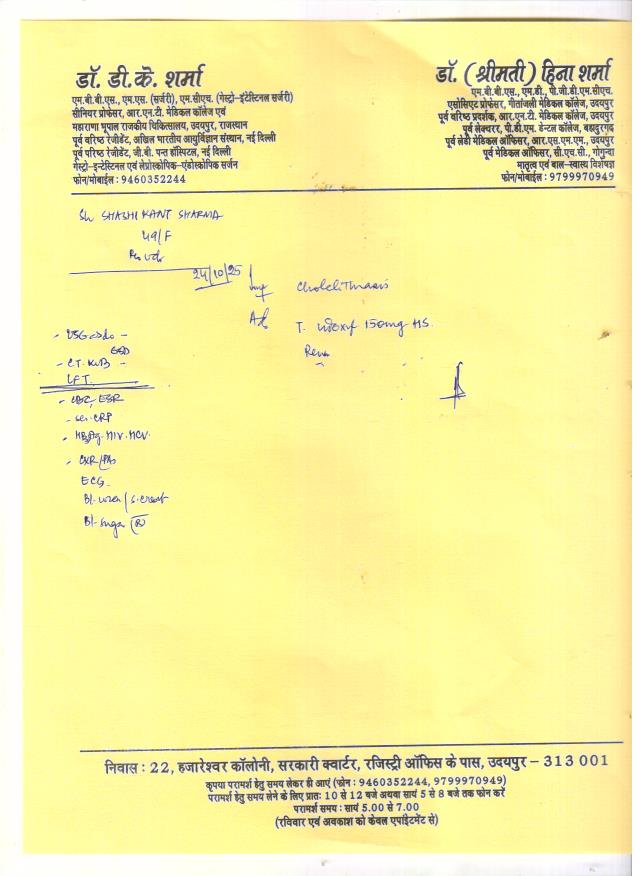 डॉ. डी.के. शर्मा
एम.बी.बी.एस., एम.एस. (सर्जरी), एम.सीएच. (गेस्ट्रो-इंटेस्टिनल सर्जरी)
सीनियर प्रोफेसर, आर.एन.टी. मेडिकल कॉलेज एवं
महाराणा भूपाल राजकीय चिकित्सालय, उदयपुर, राजस्थान
पूर्व वरिष्ठ रेजीडेंट, अखिल भारतीय आयुर्विज्ञान संस्थान, नई दिल्ली
पूर्व वरिष्ठ रेजीडेंट, जी.बी. पन्त हॉस्पिटल, नई दिल्ली
गेस्ट्रो-इन्टेस्टिनल एवं लेप्रोस्कोपिक-एंडोस्कोपिक सर्जन
फोन/मोबाईल : 9460352244
डॉ. (श्रीमती) हिना शर्मा
एम.बी.बी.एस., एम.डी., पी.जी.डी.एम.सीएच.
एसोसिएट प्रोफेसर, गीतांजली मेडिकल कॉलेज, उदयपुर
पूर्व वरिष्ठ प्रदर्शक, आर.एन.टी. मेडिकल कॉलेज, उदयपुर
पूर्व लेक्चरर, पी.डी.एम. डेन्टल कॉलेज, बहादुरगढ़
पूर्व लेडी मेडिकल ऑफिसर, आर.एस.एम.एम., उदयपुर
पूर्व मेडिकल ऑफिसर, सी.एच.सी., गोगुन्दा
मातृत्व एवं बाल-स्वास्थ्य विशेषज्ञ
फोन/मोबाईल : 9799970949
SHASHI KANT SHARMA
49/F
24/10/25
T. 150mg HS.
- CT. KUB -
LFT.
- CBC, ESR
- ser. CRP
- HBsAg. HIV. HCV.
- CXR/PA
ECG
Bl. urea / S. creat
Bl. sugar (R)
निवास : 22, हजारेश्वर कॉलोनी, सरकारी क्वार्टर, रजिस्ट्री ऑफिस के पास, उदयपुर – 313 001
कृपया परामर्श हेतु समय लेकर ही आएं (फोन : 9460352244, 9799970949)
परामर्श हेतु समय लेने के लिए प्रातः 10 से 12 बजे अथवा सायं 5 से 8 बजे तक फोन करें
परामर्श समय : सायं 5.00 से 7.00
(रविवार एवं अवकाश को केवल एपाईंटमेंट से)